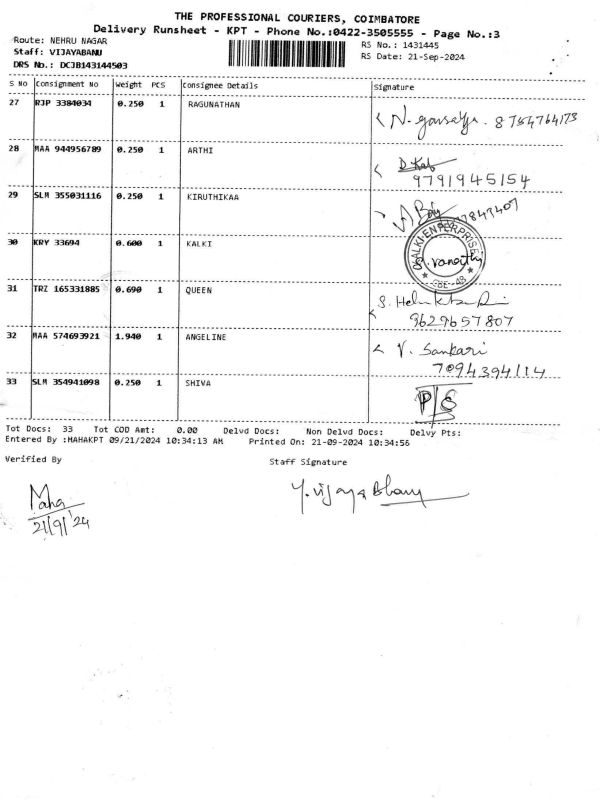 THE PROFESSIONAL COURIERS, COIMBATORE
Delivery Runsheet - KPT - Phone No.:0422-3505555 - Page No.:3
Route: NEHRU NAGAR RS No.: 1431445
Staff: VIJAYABANU RS Date: 21-Sep-2024
DRS No.: DCJB143144503
S NO Consignment No Weight PCS Consignee Details Signature
27 RJP 3384034 0.250 1 RAGUNATHAN
28 MAA 944956789 0.250 1 ARTHI
9791945154
29 SLM 355031116 0.250 1 KIRUTHIKAA
30 KRY 33694 0.600 1 KALKI
KALKI ENTERPRISE
CBE-43
31 TRZ 165331885 0.690 1 QUEEN
9629657807
32 MAA 574693921 1.940 1 ANGELINE
V. Sankari
7094394114
33 SLM 354941098 0.250 1 SHIVA
P/S
Tot Docs: 33 Tot COD Amt: 0.00 Delvd Docs: Non Delvd Docs: Delvy Pts:
Entered By :MAHAKPT 09/21/2024 10:34:13 AM Printed On: 21-09-2024 10:34:56
Verified By Staff Signature
Maha Y. Vijaya Bhanu
21/9/24